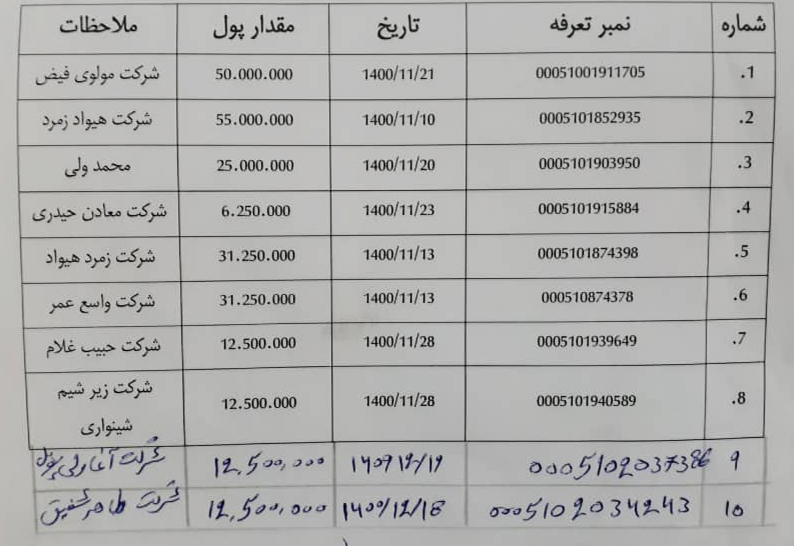 شماره نمبر تعرفه تاریخ مقدار پول ملاحظات
.1 00051001911705 1400/11/21 50.000.000 شرکت مولوی فیض
.2 0005101852935 1400/11/10 55.000.000 شرکت هیواد زمرد
.3 0005101903950 1400/11/20 25.000.000 محمد ولی
.4 0005101915884 1400/11/23 6.250.000 شرکت معادن حیدری
.5 0005101874398 1400/11/13 31.250.000 شرکت زمرد هیواد
.6 000510874378 1400/11/13 31.250.000 شرکت واسع عمر
.7 0005101939649 1400/11/28 12.500.000 شرکت حبیب غلام
.8 0005101940589 1400/11/28 12.500.000 شرکت زیر شیم
شینواری
9 0005102037386 12,500,000 شرکت آغا ولی
10 0005102034243 1400/12/18 12,500,000 شرکت طاهر شفیق